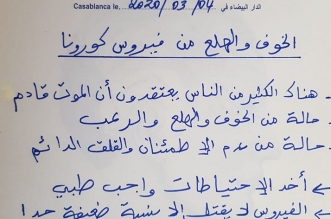 Casablanca le, 2020/03/04 الدار البيضاء في
الخوف والهلع من فيروس كورونا
- هناك الكثير من الناس يعتقدون أن الموت قادم
- حالة من الخوف والهلع والرعب
- حالة من عدم الاطمئنان والقلق الدائم
أخد الاحتياطات واجب طبي
الفيروس لا يقتل إلا بنسبة ضعيفة جدا